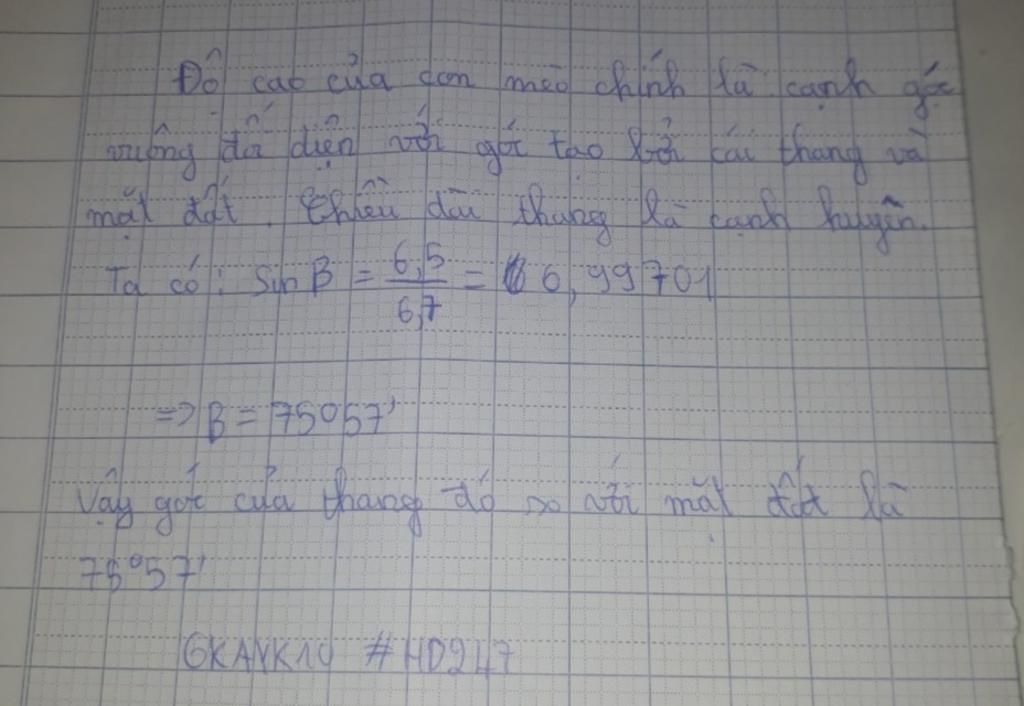 Độ cao của con mèo chính là cạnh góc
vuông đối diện với góc tạo bởi cái thang và
mặt đất. Chiều dài thang là cạnh huyền.
Ta có: Sin B = 6,5/6,7 = 6,99701
=> B = 75°57'
Vậy góc của thang đó so với mặt đất là
75°57'
#HD247